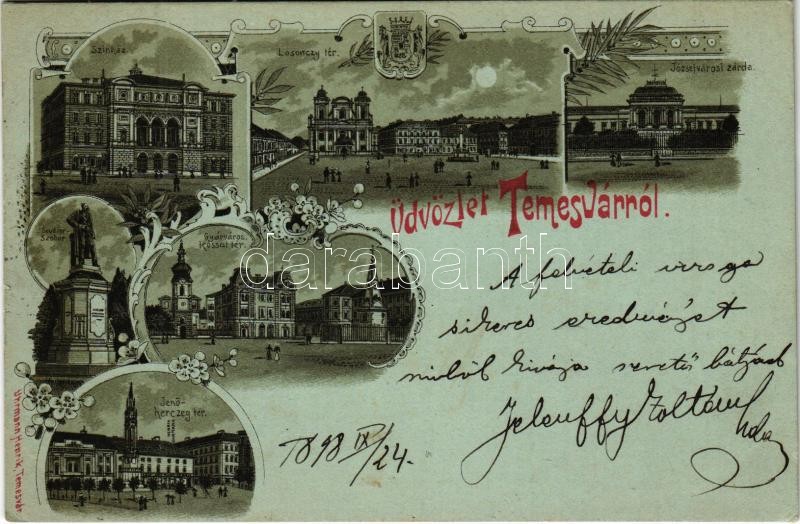 Színház.
Losonczy tér.
Józsefvárosi zárda.
Üdvözlet Temesvárról.
Scudier-
Szobor
Gyárváros.
Kossut tér.
darabanth
.com
A felvételi vizsga
sikeres eredményét
szerető bátyád
Zoltán
Jenő-
herczeg tér.
1898 IX/24.
Uhrmann Henrik, Temesvár